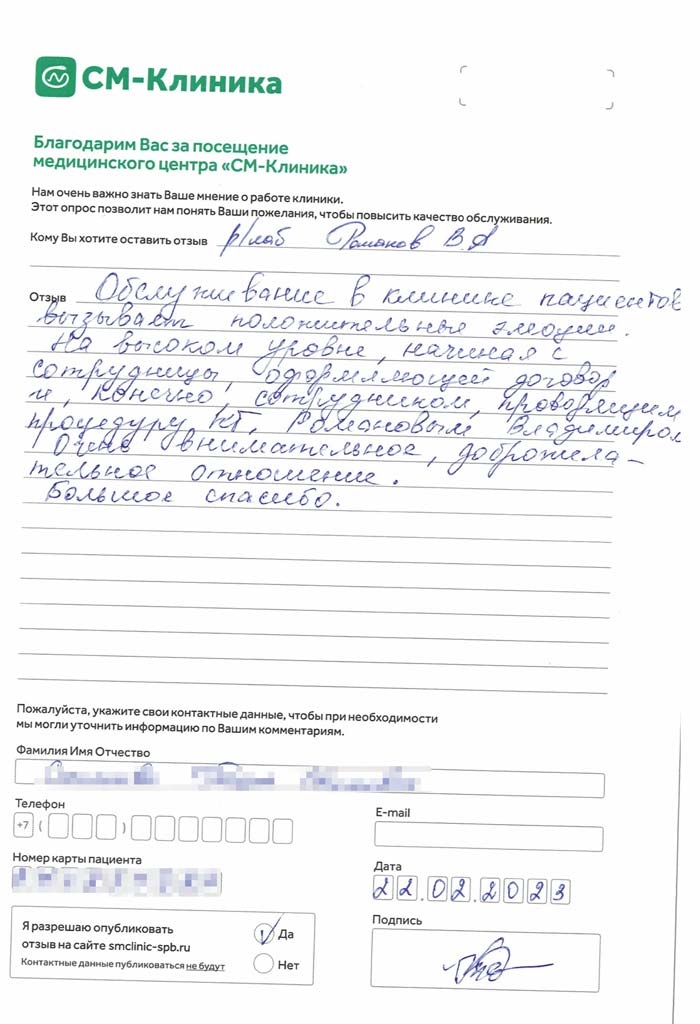 СМ-Клиника
Благодарим Вас за посещение
медицинского центра «СМ-Клиника»
Нам очень важно знать Ваше мнение о работе клиники.
Этот опрос позволит нам понять Ваши пожелания, чтобы повысить качество обслуживания.
Кому Вы хотите оставить отзыв р/лаб Романов В.А
Отзыв Обслуживание в клинике пациентов
вызывает положительные эмоции.
На высоком уровне, начиная с
сотрудницы, оформляющей договор
и, конечно, сотрудником, проводящим
процедуру КТ, Романовым Владимиром
Очень внимательное, доброжела-
тельное отношение.
Большое спасибо.
Пожалуйста, укажите свои контактные данные, чтобы при необходимости
мы могли уточнить информацию по Вашим комментариям.
Фамилия Имя Отчество
Телефон
+7 ( )
E-mail
Номер карты пациента
Дата
22.02.2023
Я разрешаю опубликовать
отзыв на сайте smclinic-spb.ru
Контактные данные публиковаться не будут
Да
Нет
Подпись